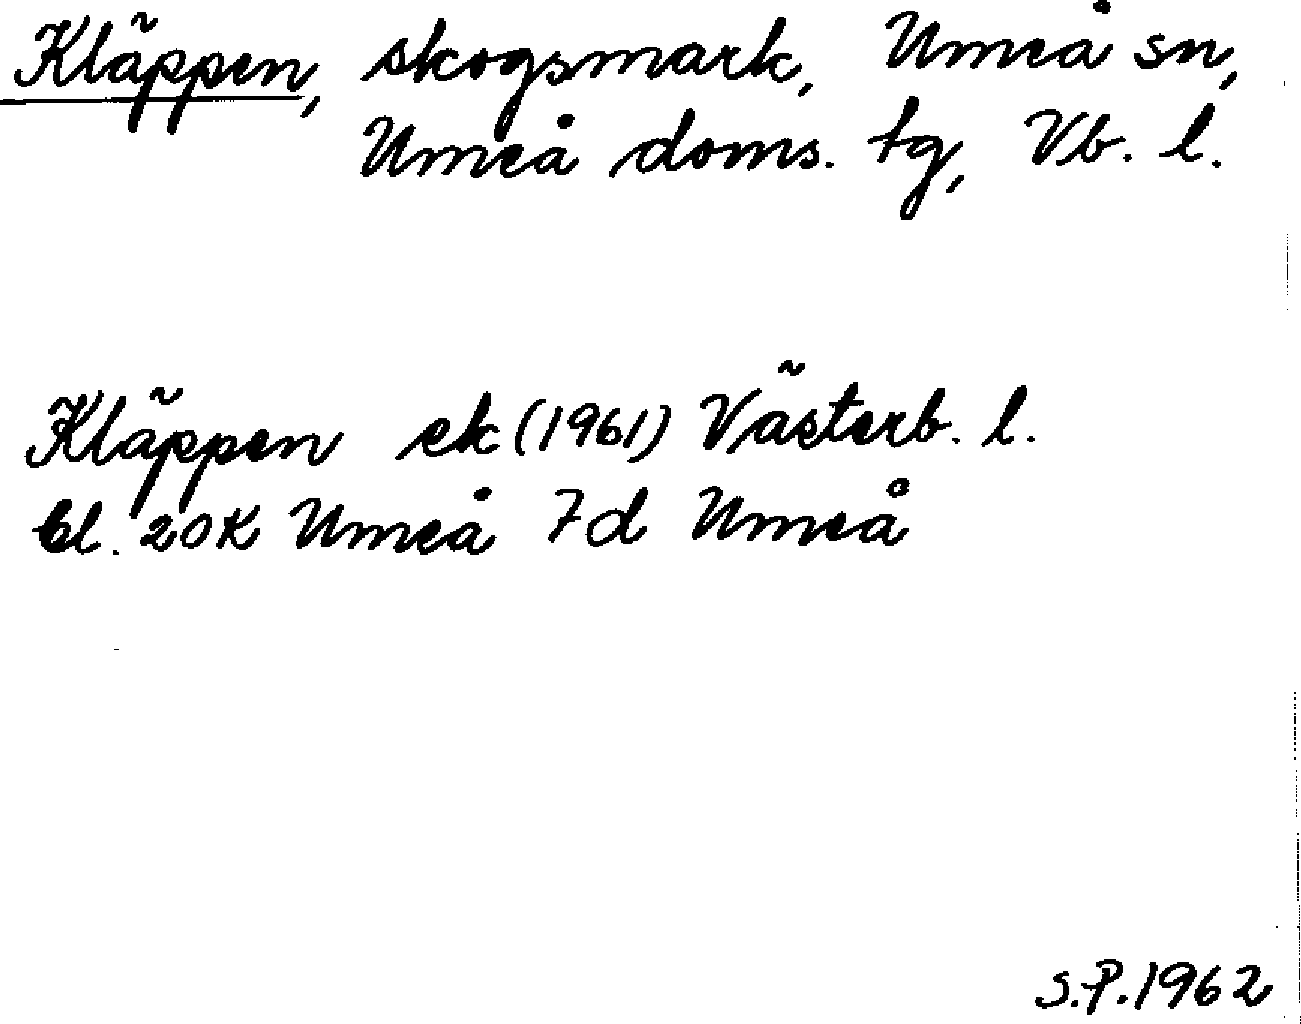 Kläppen, skogsmark, Umeå sn,
Umeå doms. tg, Vb. l.
Kläppen ek (1961) Västerb. l.
bl. 20K Umeå 7d Umeå
S.P.1962